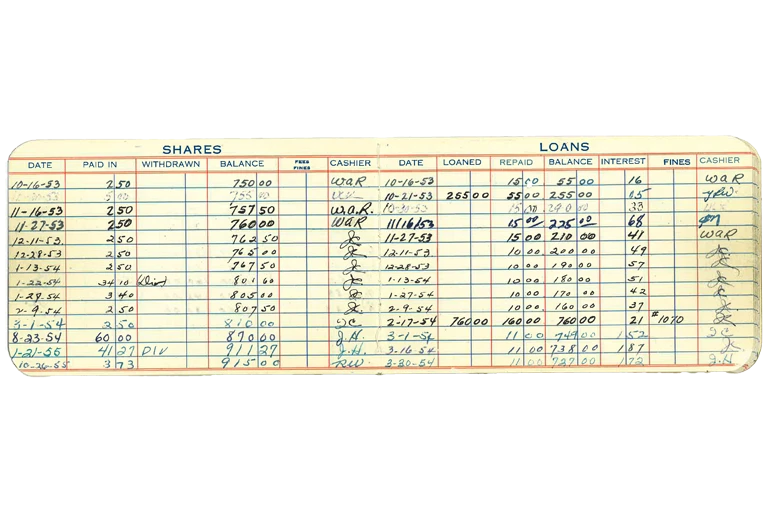 SHARES LOANS
DATE PAID IN WITHDRAWN BALANCE FEES FINES CASHIER DATE LOANED REPAID BALANCE INTEREST FINES CASHIER
10-16-53 2 50 750 00 WAR 10-16-53 15 00 55 00 16 WAR
5 00 755 00 10-21-53 255 00 55 00 255 00
11-16-53 2 50 757 50 W.A.R. 15 00 240 00 33
11-27-53 2 50 760 00 WAR 11/16/53 15 00 225 00 68
12-11-53 2 50 762 50 11-27-53 15 00 210 00 41 WAR
12-28-53 2 50 765 00 12-11-53 10 00 200 00 49
1-13-54 2 50 767 50 12-28-53 10 00 190 00 57
1-22-54 34 10 801 60 1-13-54 10 00 180 00 51
1-28-54 3 40 805 00 1-27-54 10 00 170 00 42
2-9-54 2 50 807 50 2-9-54 10 00 160 00 37
3-1-54 2 50 810 00 2-17-54 760 00 160 00 760 00 21 #1070
8-23-54 60 00 870 00 J.H. 3-1-54 11 00 749 00 1 52
1-21-55 41 27 DIV 911 27 J.H. 3-16-54 11 00 738 00 1 87
10-26-55 3 73 915 00 RW 3-30-54 11 00 727 00 1 72 J.H